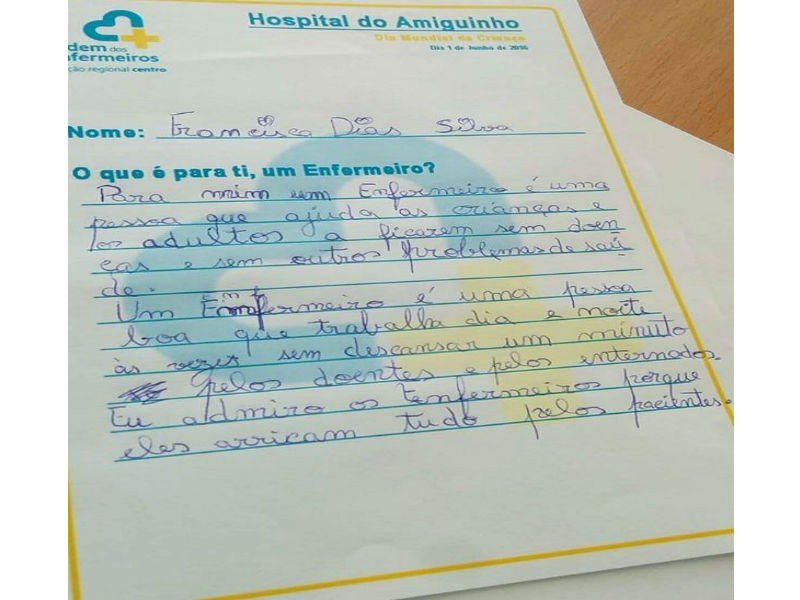 Hospital do Amiguinho
Dia Mundial da Criança
Dia 1 de Junho de 2016
dem dos
nfermeiros
ção regional centro
Nome: Francisca Dias Silva
O que é para ti, um Enfermeiro?
Para mim um Enfermeiro é uma
pessoa que ajuda as crianças e
os adultos a ficarem sem doen
ças e sem outros problemas de saú
de.
Um Enfermeiro é uma pessoa
boa que trabalha dia e noite
às vezes sem descansar um minuto
pelos doentes e pelos enternados.
Eu admiro os Enfermeiros porque
eles arricam tudo pelos pacientes.